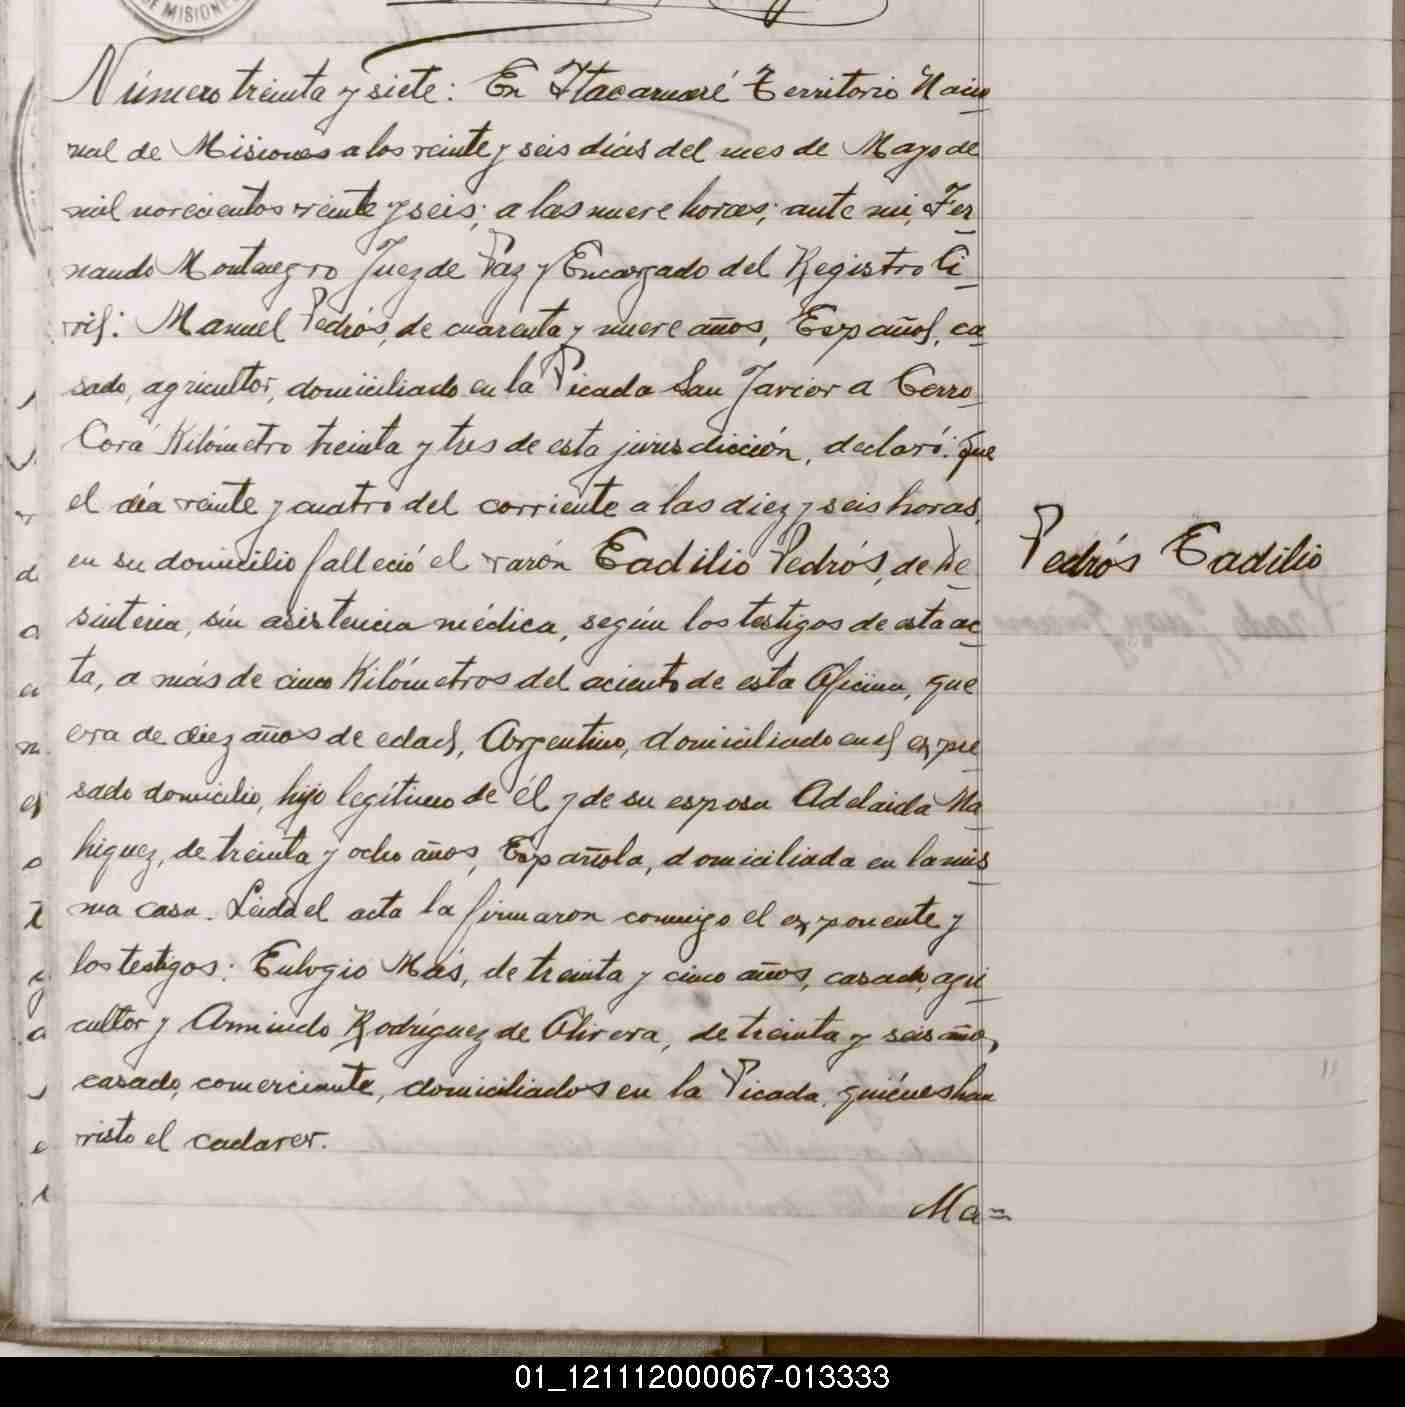 DE MISIONES
Número treinta y siete: En Itacaruaré Territorio Nacio
nal de Misiones a los veinte y seis días del mes de Mayo de
mil novecientos veinte y seis; a las nueve horas; ante mi, Fer
nando Montenegro Juez de Paz y Encargado del Registro Ci
vil: Manuel Pedrós, de cuarenta y nueve años, Español, ca
sado, agricultor, domiciliado en la Picada San Javier a Cerro
Corá Kilómetro treinta y tres de esta jurisdicción, declaró: que
el día veinte y cuatro del corriente a las diez y seis horas,
en su domicilio falleció el varón Eadilio Pedrós, de De
Pedrós Eadilio
sinteria, sin asistencia médica, según los testigos de esta ac
ta, a más de cinco Kilómetros del aciento de esta Oficina, que
era de diez años de edad, Argentino, domiciliado en el expre
sado domicilio, hijo legítimo de él y de su esposa Adelaida Ma
higuez, de treinta y ocho años, Española, domiciliada en la mis
ma casa. Leida el acta la firmaron conmigo el exponente y
los testigos: Eulogio Más, de treinta y cinco años, casado, agri
cultor y Armindo Rodríguez de Olivera, de treinta y seis años,
casado, comerciante, domiciliados en la Picada, quiénes han
visto el cadaver.
Ma=
01_121112000067-013333